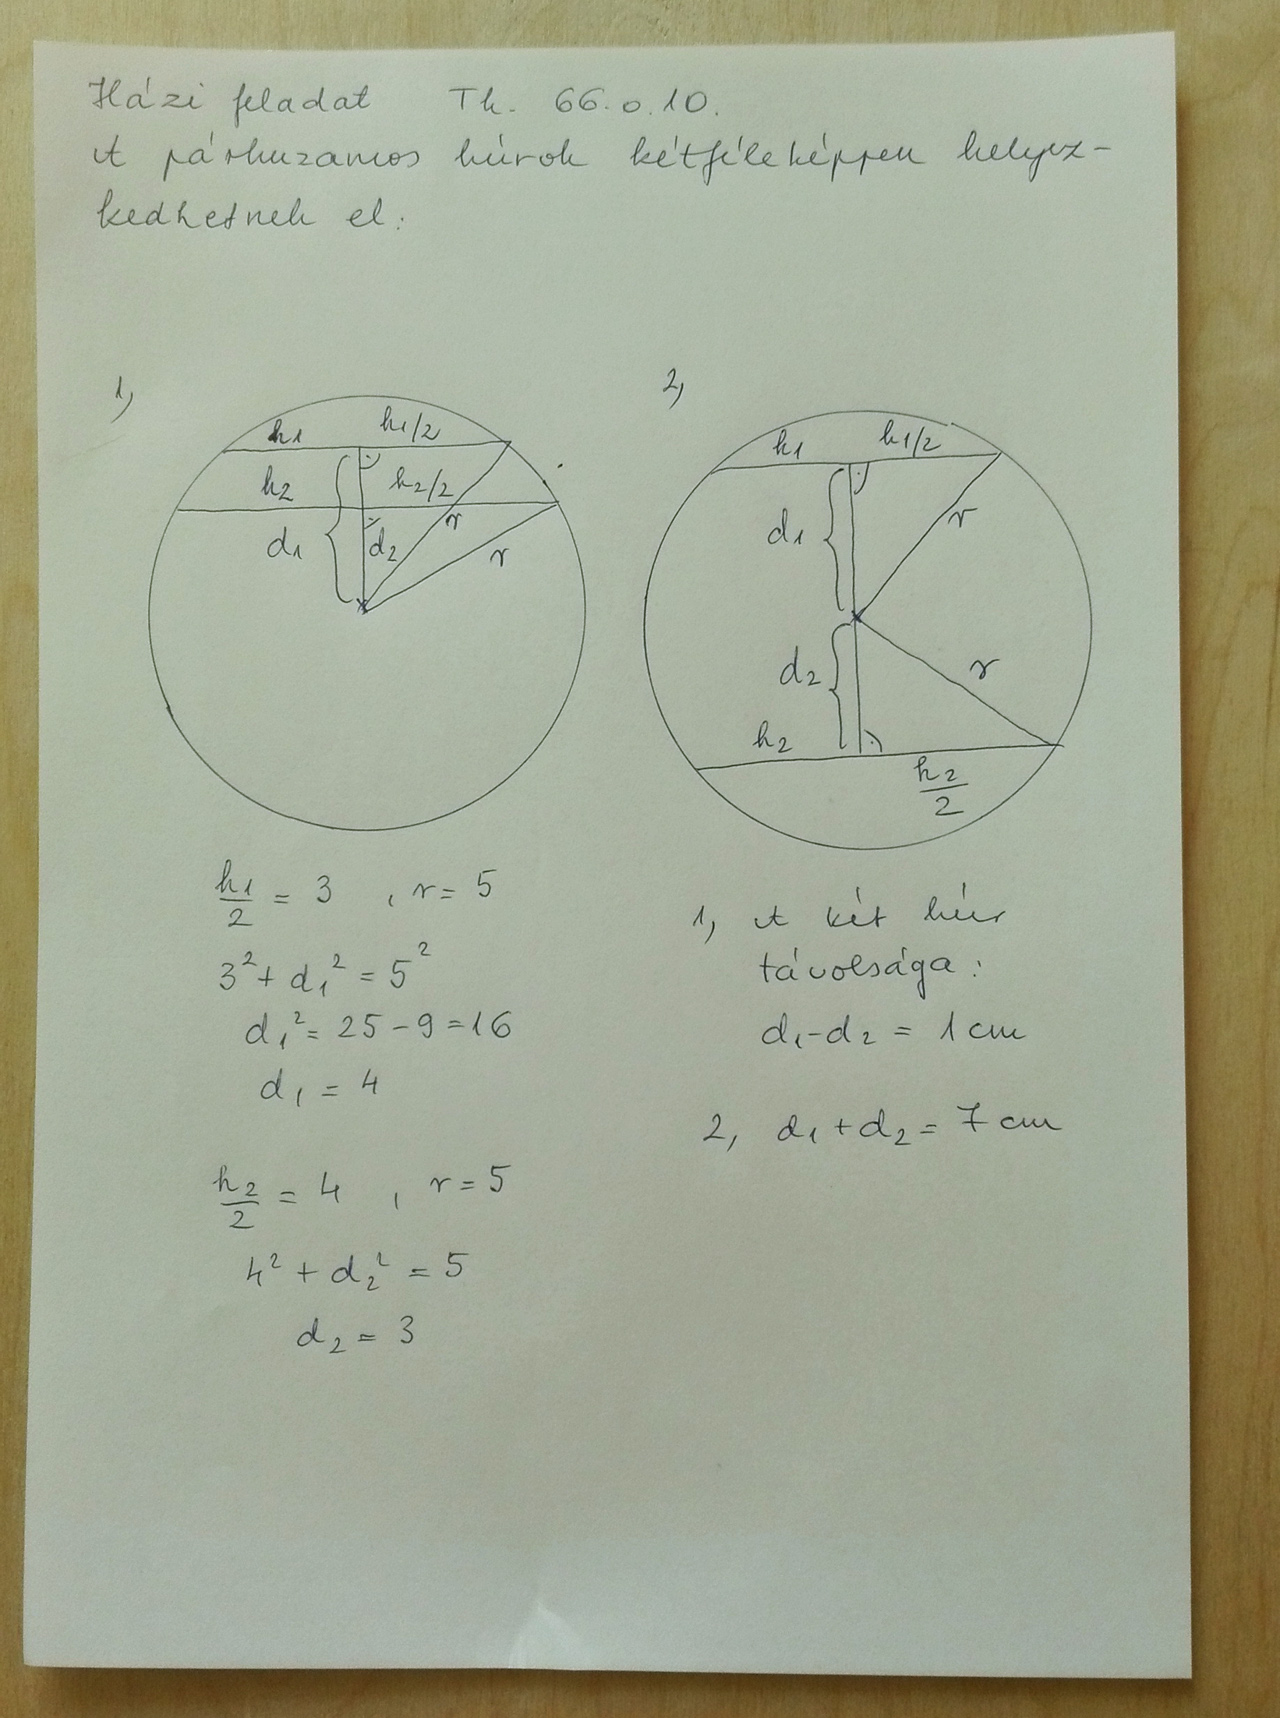 Házi feladat Tk. 66.o.10.
A párhuzamos húrok kétféleképpen helyez-
kedhetnek el:
1,
h1 h1/2
h2 h2/2
d1 d2 r
r
2,
h1 h1/2
d1 r
d2 r
h2
h2/2
h1/2 = 3 , r = 5
3² + d₁² = 5²
d₁² = 25 - 9 = 16
d₁ = 4
h2/2 = 4 , r = 5
4² + d₂² = 5
d₂ = 3
1, A két húr
távolsága:
d₁ - d₂ = 1 cm
2, d₁ + d₂ = 7 cm